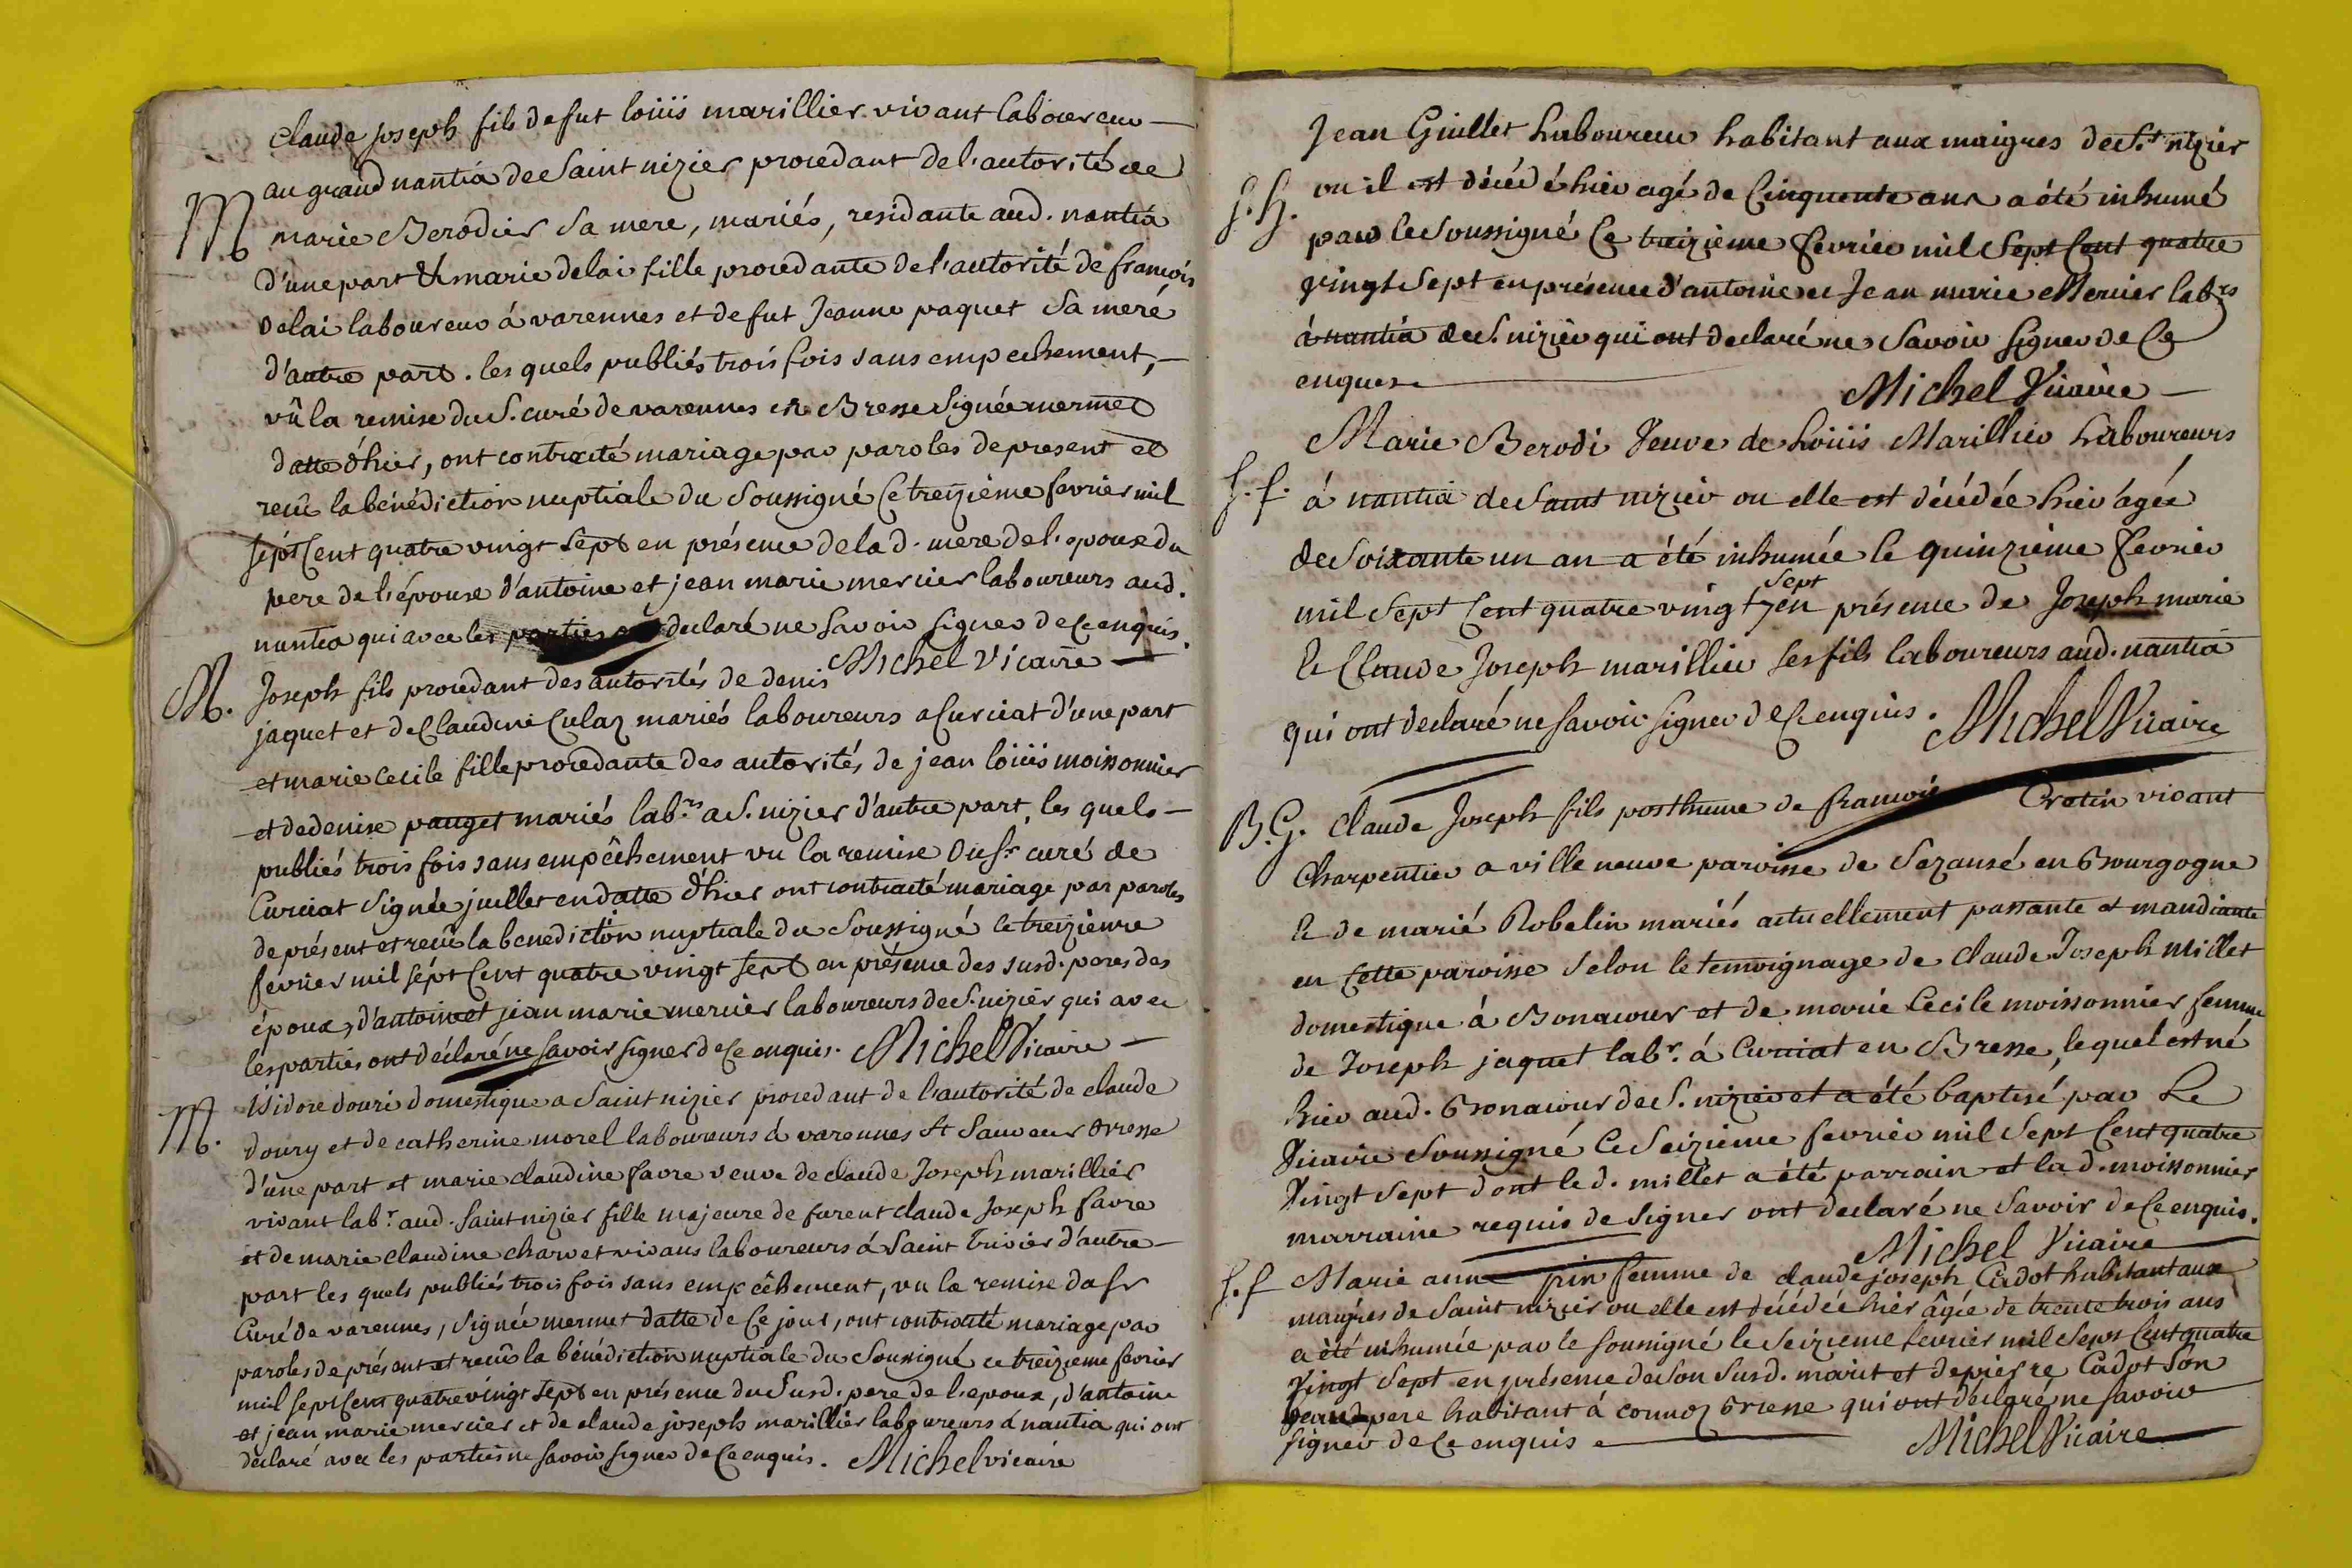 claude joseph fils de fut loüis marillier vivant laboureur
au grand nantia de Saint nizier procedant de l'autorité de
M marie Berodier Sa mere, mariés, residante aud. nantia
d'une part & marie delai fille procedante de l'autorité de françois
delai laboureur á varennes et de fut Jeanne paquet Sa meré
d'autre part. les quels publiés trois fois sans empechement,
vû la remise du S. curé de varennes en Bresse Signée mermet
datte d'hier, ont contracté mariage par paroles de present et
reçû la bénédiction nuptiale du Soussigné Ce treizième fevrier mil
sept Cent quatre vingt Sept en présence de la d. mere de l'epoux du
pere de l'épouse d'antoine et jean marie mercier laboureurs aud.
nantia qui avec les parties declaré ne Savoir Signer de Ce enquis.
Michel Vicaire
M. Joseph fils procedant des autorités de denis
jaquet et de Claudine Culaz mariés laboureurs a Curciat d'une part
et marie Cecile fille procedante des autorités de jean loüis moissonnier
et de denise pauget mariés lab.rs a S. nizier d'autre part, les quels
publiés trois fois sans empêchement vu la remise du Sr curé de
Curciat Signée juillet en datte d'hier ont contracté mariage par paroles
de présent et reçû la benediction nuptiale du Soussigné le treizieme
février mil sépt Cent quatre vingt Sept en présence des susd. peres des
époux, d'antoine et jean marie mercier laboureurs de S. nizier qui avec
les parties ont déclaré ne Savoir signer de Ce enquis. Michel Vicaire
M. Isidore douri domestique a Saint nizier procedant de l'autorité de claude
doury et de catherine morel laboureurs á varennes St Sauveur Bresse
d'une part et marie claudine favre veuve de claude Joseph marillier
vivant lab.r aud. Saint nizier fille majeure de furent claude Joseph favre
et de marie claudine charvet vivans laboureurs á Saint trivier d'autre
part les quels publiés trois fois sans empêchement, vu la remise du Sr
Curé de varennes, Signée mermet datte de Ce jour, ont contracté mariage par
paroles de présent et reçû la bénédiction nuptiale du Soussigné ce treizieme fevrier
mil sept Cent quatre vingt Sept en présence du Susd. pere de l'epoux, d'antoine
et jean marie mercier et de claude joseph marillier laboureurs á nantia qui ont
declaré avec les parties ne Savoir Signer de Ce enquis. Michel vicaire
Jean Guillet Laboureur habitant aux maigres de St nizier
ou il est décédé hier agé de Cinquante ans a été inhumé
par le Soussigné Ce treizieme fevrier mil Sept Cent quatre
vingt Sept en présence d'antoine et Jean marie Mercier lab.rs
á nantia de S. nizier qui ont declaré ne Savoir Signer de Ce
enquis
Michel Vicaire
Marie Berodi Veuve de Loüis Marillier Laboureurs
á nantia de Saint nizier ou elle est décédée hier agée
de Soixante un an a été inhumée le quinzieme fevrier
Sept
mil Sept Cent quatre vingt en présence de Joseph marie
et Claude Joseph marillier Ses fils laboureurs aud. nantia
qui ont declaré ne Savoir Signer de Ce enquis. Michel Vicaire
B.G. Claude Joseph fils posthume de françois Cretin vivant
Charpentier a ville neuve paroisse de Sezansé en Bourgogne
et de marié Robelin mariés actuellement passante et mandiante
en Cette paroisse Selon le temoignage de Claude Joseph Millet
domestique á Bonacour et de marie Cecile moissonnier femme
de Joseph jaquet lab.r á Curciat en Bresse, lequel est né
hier aud. Bonacour de S. nizier et a été baptisé par Le
Vicaire Soussigné Ce Seizieme fevrier mil Sept Cent quatre
Vingt Sept dont le d. millet a été parrain et la d. moissonnier
marraine requis de Signer ont declaré ne Savoir de Ce enquis.
Michel Vicaire
Marie anne pin femme de claude joseph Cadot habitant aux
maigres de Saint nizier ou elle est décédée hier âgée de trente trois ans
a été inhumée par le Soussigné le Seizieme fevrier mil Sept Cent quatre
Vingt Sept en présence de Son Susd. marit et de pierre Cadot Son
pere habitant á connoz Bresse qui ont declaré ne Savoir
Signer de Ce enquis
Michel Vicaire